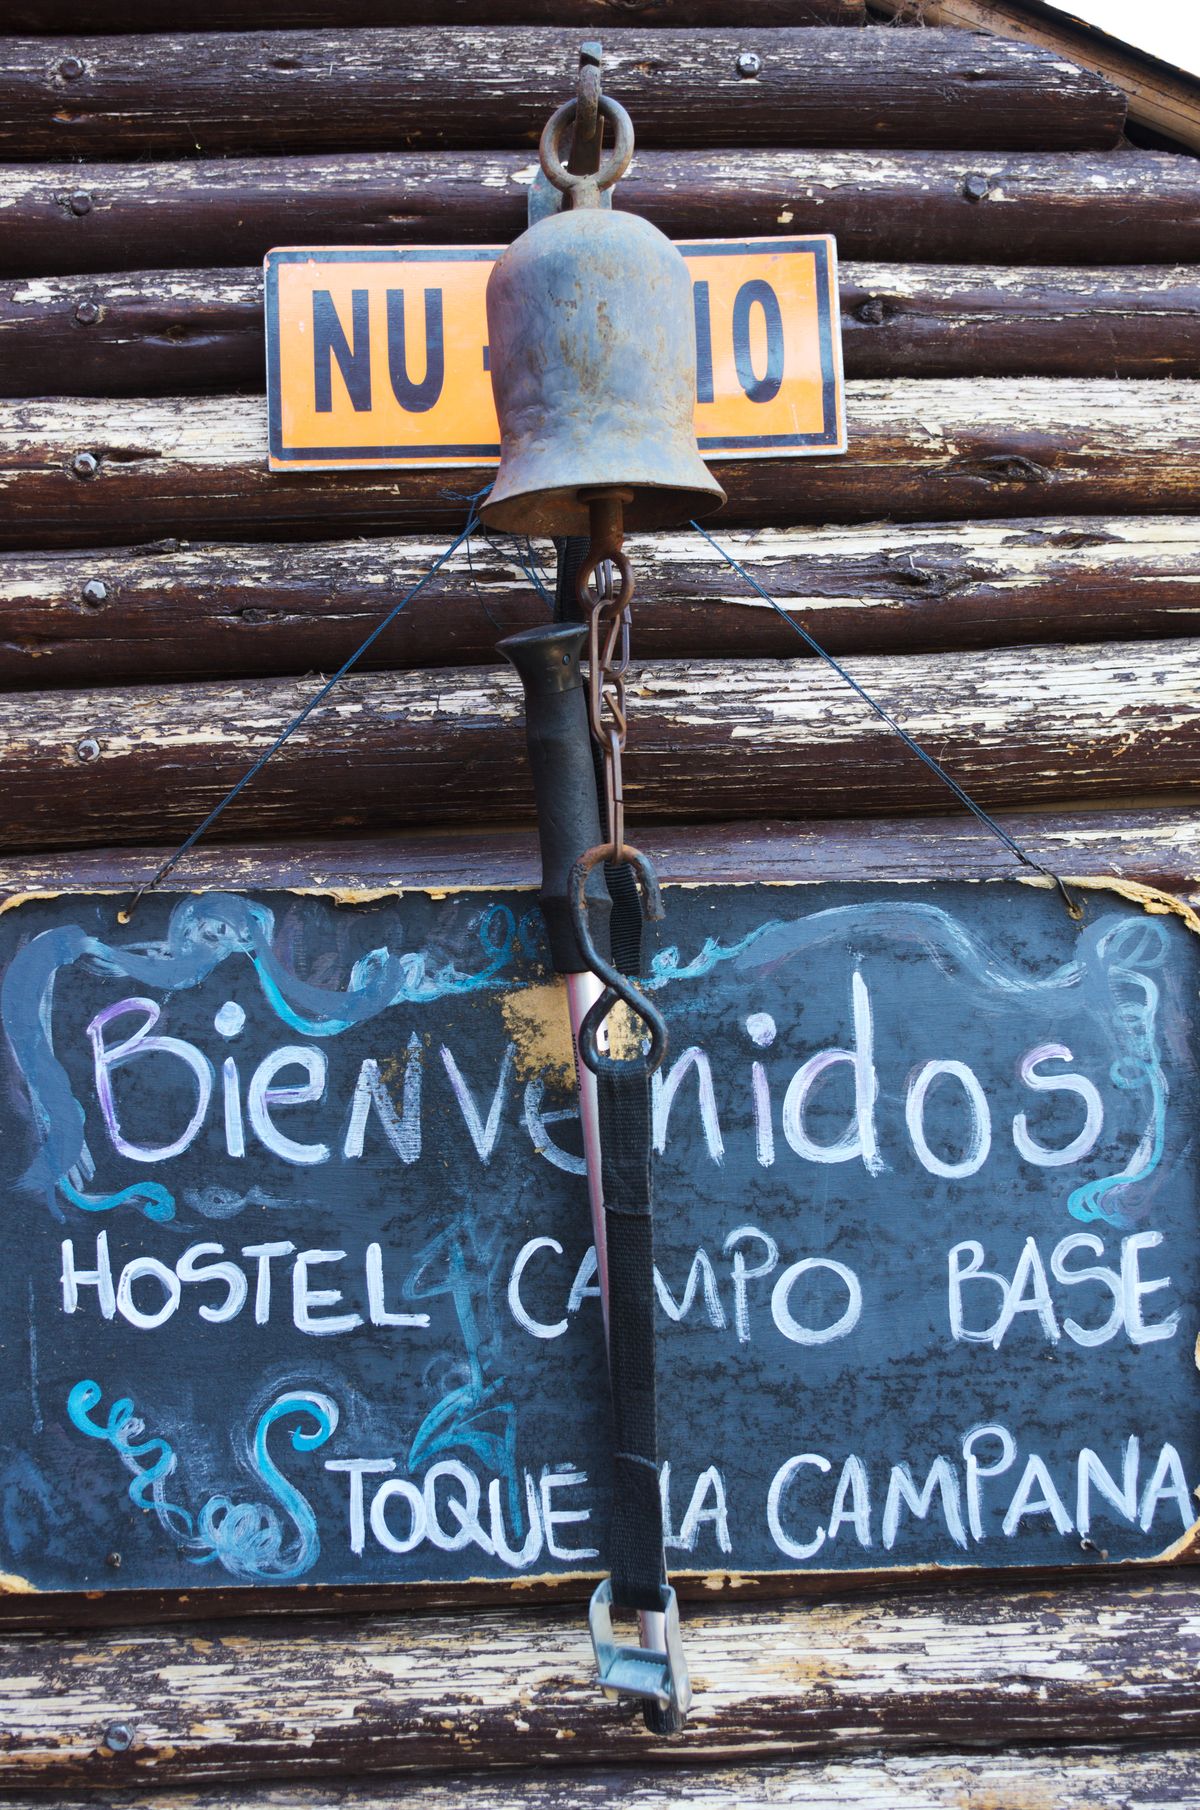 NU - 10
Bienvenidos
HOSTEL CAMPO BASE
TOQUE LA CAMPANA